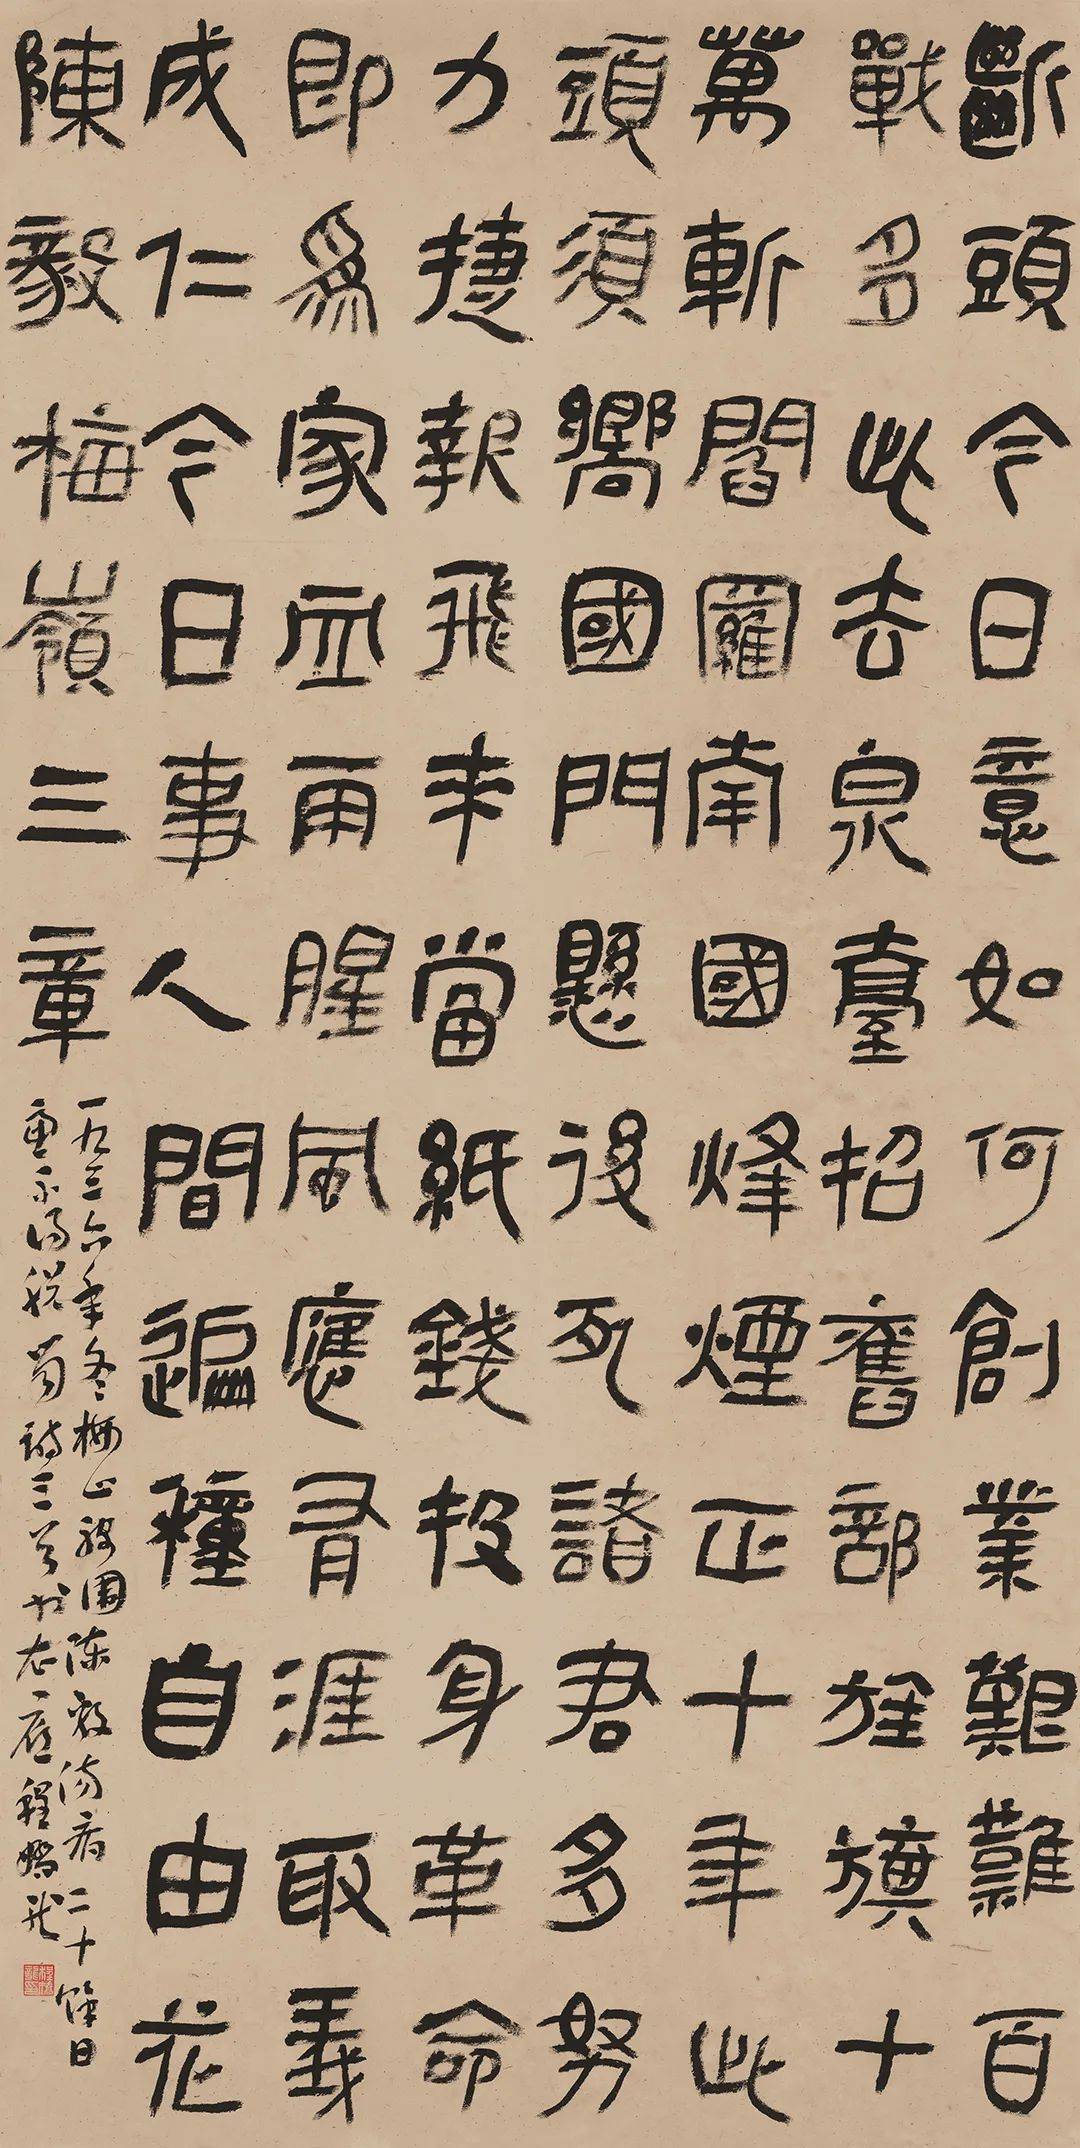 斷頭今日意如何創業艱難百
戰多此去泉臺招舊部旌旗十
萬斬閻羅南國烽煙正十年此
頭須嚮國門懸後死諸君多努
力捷報飛來當紙錢投身革命
即爲家血雨腥風應有涯取義
成仁今日事人間遍種自由花
陳毅梅嶺三章
一九三六年冬梅山被围陈毅伤病二十馀日
虑不得脱留诗三首书